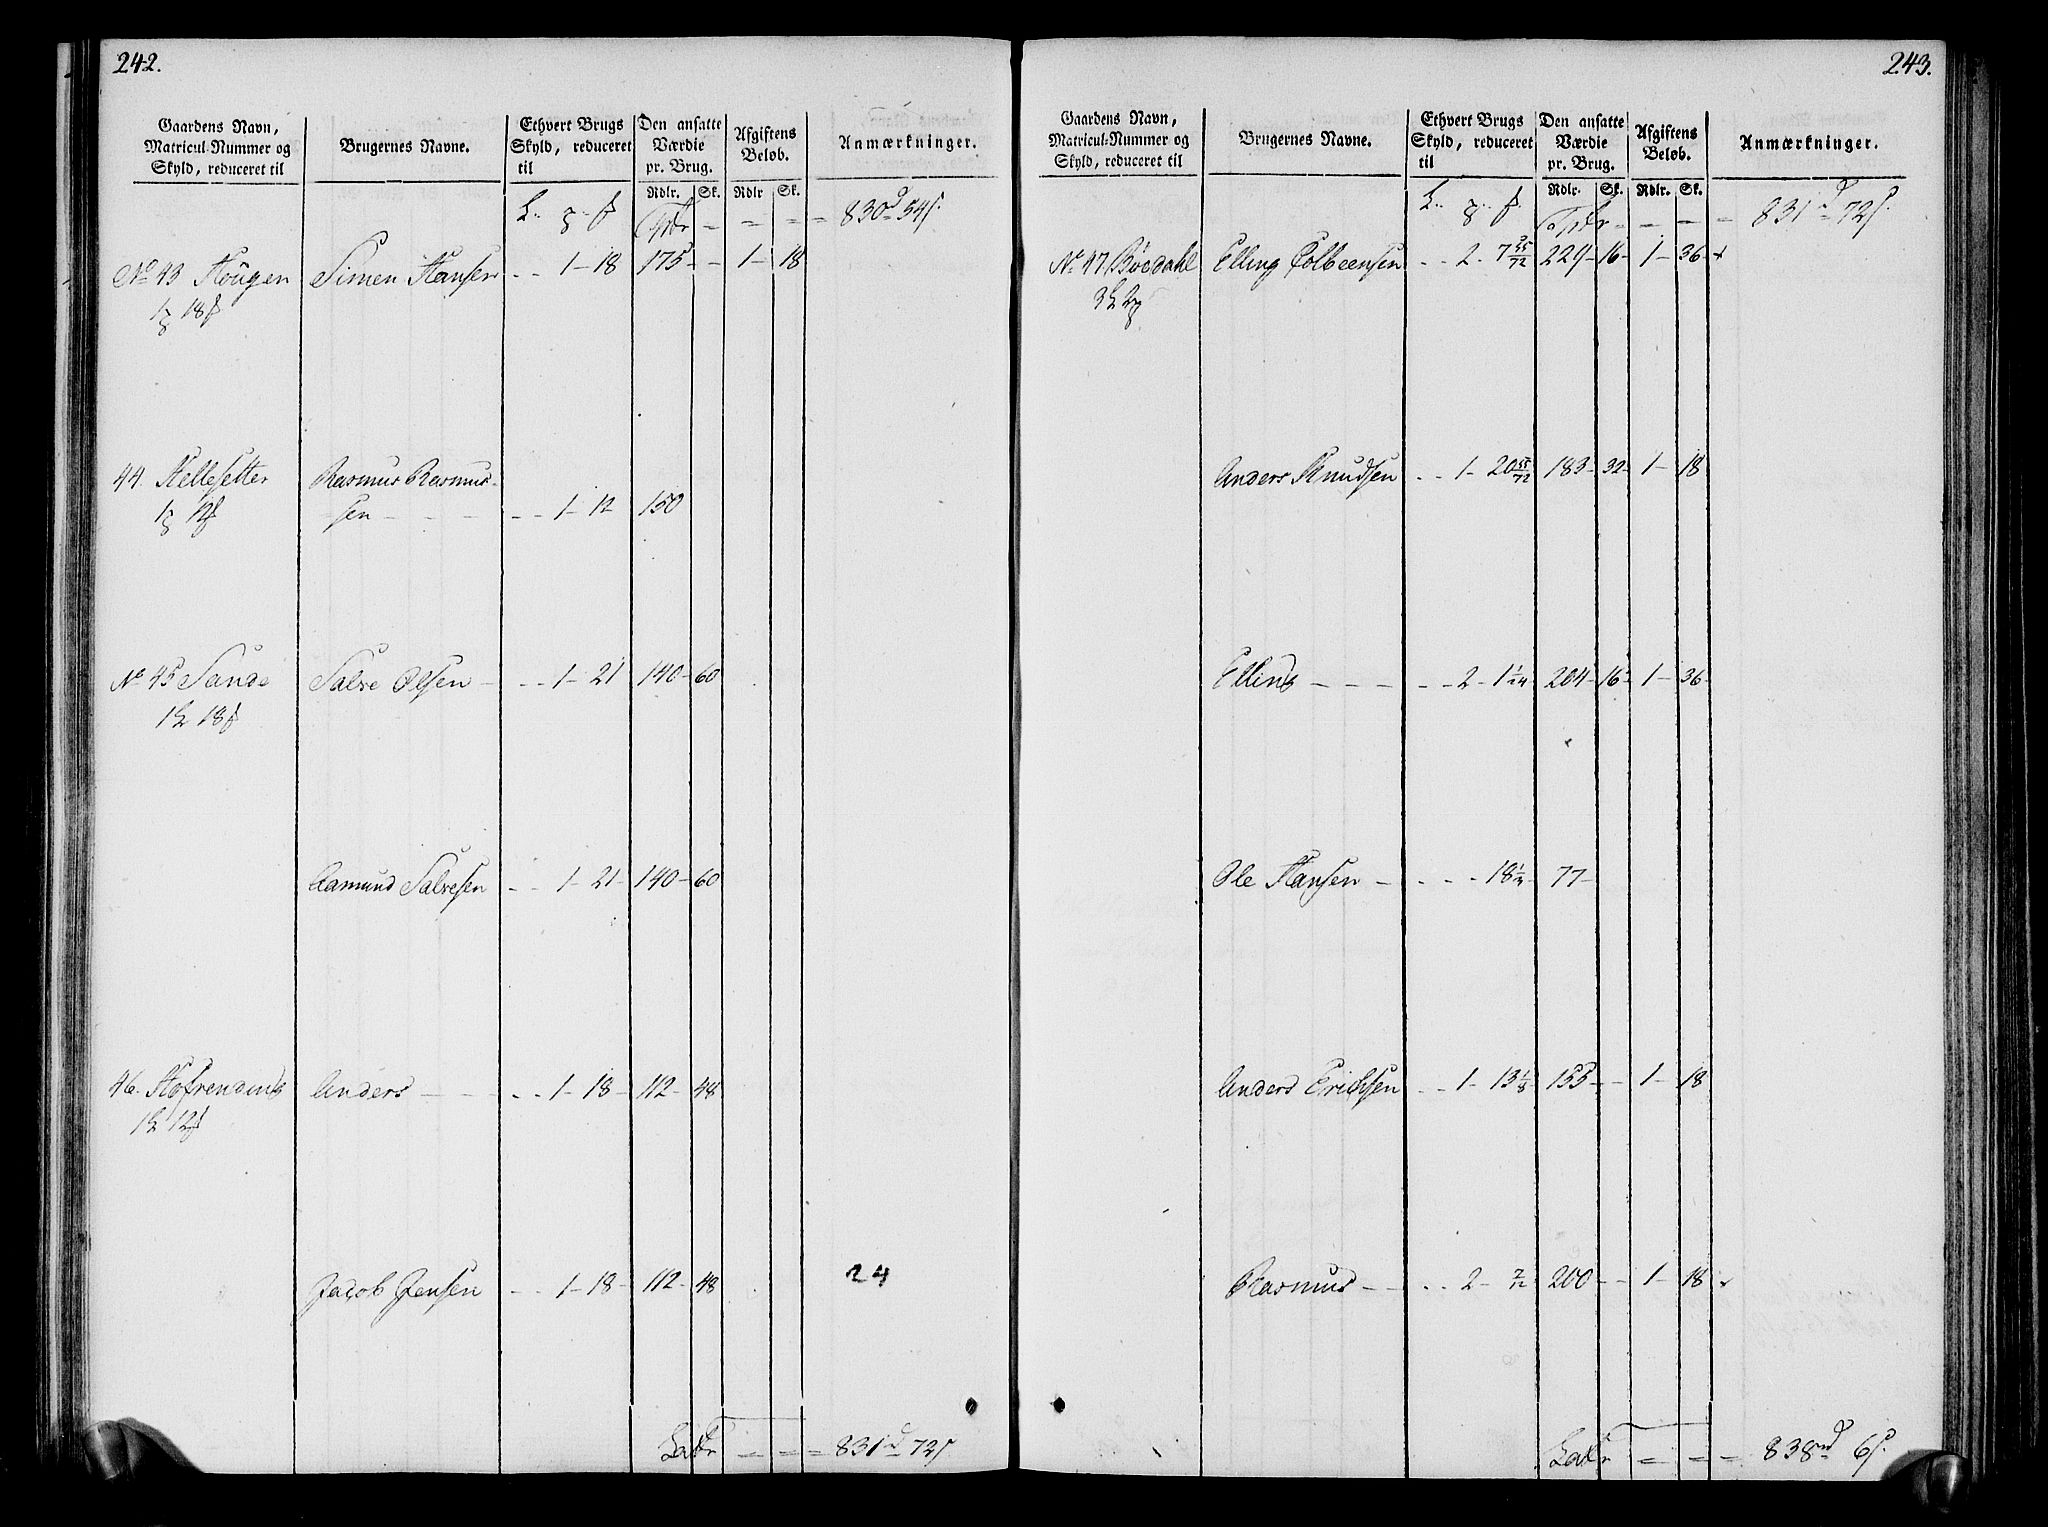 242.
Gaardens Navn, Matricul-Nummer og Skyld, reduceret til
Brugernes Navne.
Ethvert Brugs Skyld, reduceret til
Den ansatte Værdie pr. Brug.
Afgiftens Beløb.
Anmærkninger.
Rdlr. Sk. Rdlr Sk.
830d 54s.
No 43 Hougen Simen Hansen 1 - 18 175 - - 1 - 18
1 18
44. Hellesetter Rasmus Rasmus-
1 12 sen - - - 1 - 12 150
No 45 Sande Salve Olsen - - - 1 - 21 140 - 60
1 18
Aamund Salvesen - - 1 - 21 - 140 - 60
46. Anders - - - - 1 - 18 - 112 - 48
1 12
Jacob Jensen - - 1 - 18 - 112 - 48 24
Latr = = = 831d 72s
243.
Gaardens Navn, Matricul-Nummer og Skyld, reduceret til
Brugernes Navne.
Ethvert Brugs Skyld, reduceret til
Den ansatte Værdie pr. Brug.
Afgiftens Beløb.
Anmærkninger.
Rdlr. Sk. Rdlr. Sk.
831d 72s.
No 47 Bøedahl Elling Colbeensen - - 2 - 7 35/72 229 - 16 - 1 - 36 -
3 2
Anders Knudsen - - 1 - 20 55/72 183 - 32 - 1 - 18
Elling - - - - - 2 - 1 1/24 204 - 16 - 1 - 36 -
Ole Hansen - - - - 18 77 -
Anders Erichsen - - 1 - 13 1/8 155 - - 1 - 18
Rasmus - - - - 2 - 7/12 200 - - 1 - 18
Latr = = = 838d 6s.